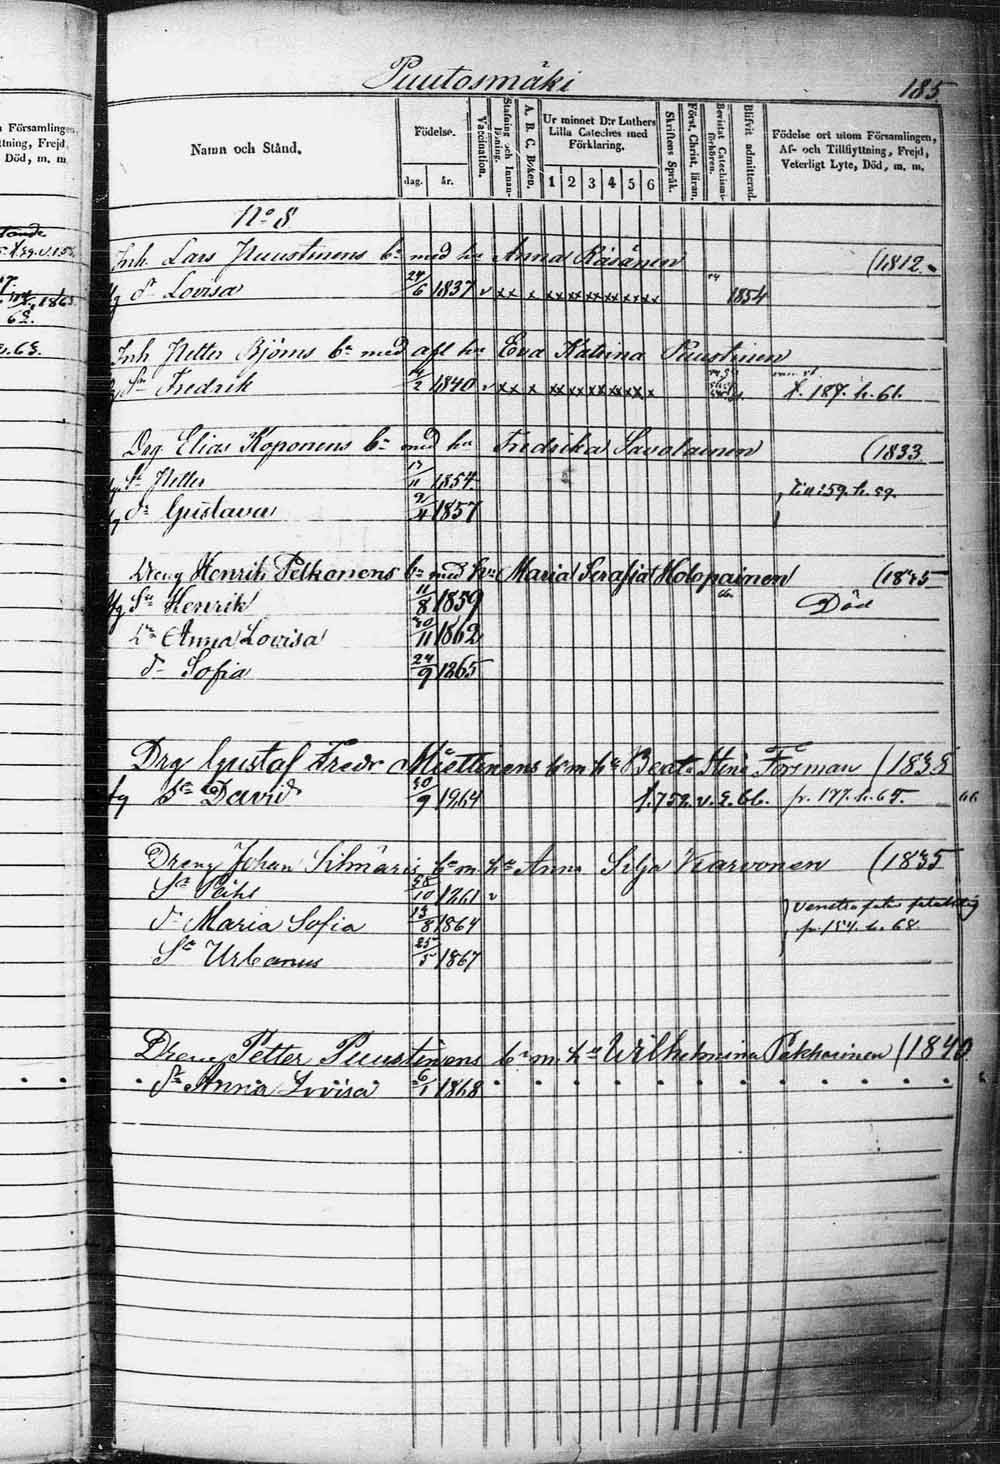 Puutosmäki
185
Namn och Stånd.
Födelse.
dag. år.
Vaccination.
Stafning och Innan-läsning.
A. B. C. Boken.
Ur minnet D:r Luthers Lilla Cateches med Förklaring.
1 2 3 4 5 6
Skriftens Språk.
Först. Christ. läran.
Bevistat Catechismi-förhören.
Blifvit admitterad.
Födelse ort utom Församlingen, Af- och Tillflyttning, Frejd, Veterligt Lyte, Död, m. m.
No 8
Inh. Lars Puustinens bn med hu Anna Räsänen (1812
dr Lovisa 24/6 1837 v xx x xx xx xx xx xx xx 1854
Inh Petter Björns bn med afl hu Eva Katrina Puustinen
Sn Fredrik 1840 v xx x xx xx xx xx xx x f. 187. h. 61.
Drg Elias Koponens bn med hu Fredrika Savolainen (1833
Sn Petter 13/11 1854
dr Gustava 21/4 1857 till 159. h. 59.
Dreng Henrik Pelkonens bn med hu Maria Serafia Holopainen (1835
Sn Henrik 11/8 1859 Död
Dr Anna Lovisa 30/11 1862
dr Sofia 24/9 1865
Drg Gustaf Fredr Miettinens bn m hu Beata Stina Forsman (1838
Sn David 30/9 1864 f. 752. v. 2. 66. fr. 177. h. 65.
Dreng Johan bn m hu Anna Silja Karvonen (1835
Sn 28/10 1861 v
dr Maria Sofia 13/8 1864 fr. 184. h. 68.
Sn Urbanus 25/5 1867
Dreng Petter Puustinens bn m hu Wilhelmina Pekkarinen (1840
dr Anna Lovisa 6/1 1868